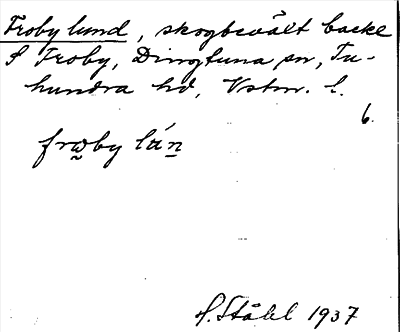 Froby lund, skogbeväxt backe
S Froby, Dingtuna sn, Tu-
hundra hd, Vstm. l.
6.
frw̰by lán̲
H. Ståhl 1937